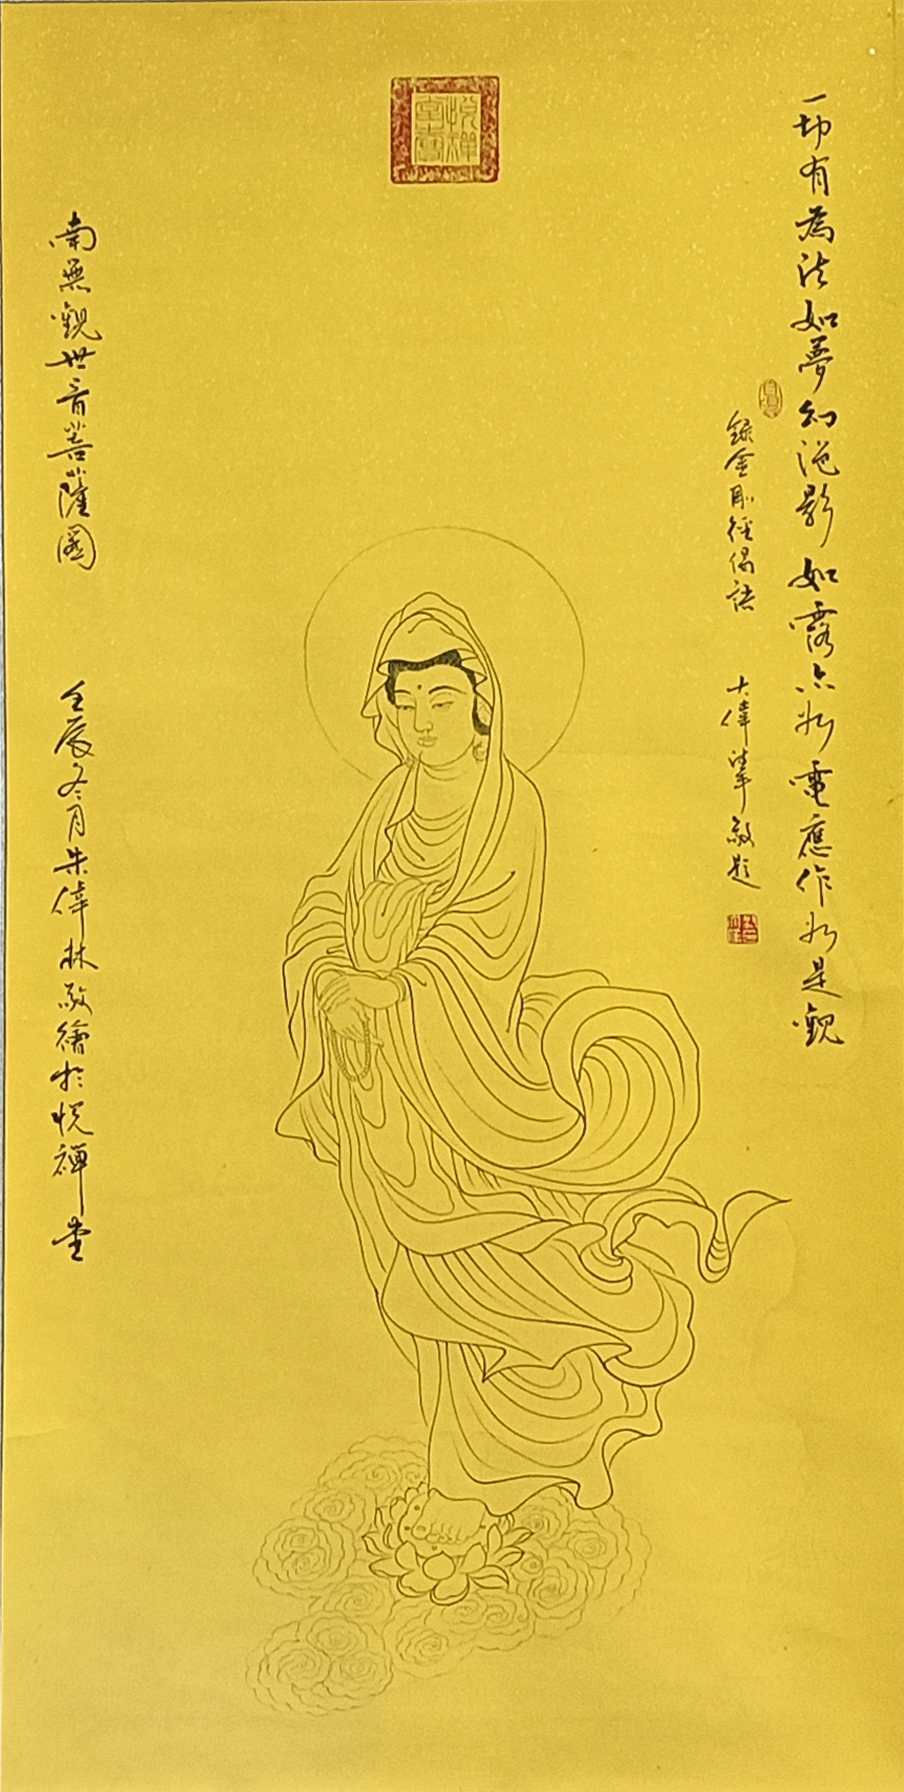 一切有為法如夢幻泡影如露亦如電應作如是觀
錄金剛經偈語
大偉沐手敬題
南無觀世音菩薩圖
壬辰冬月朱偉林敬繪於悅禪堂